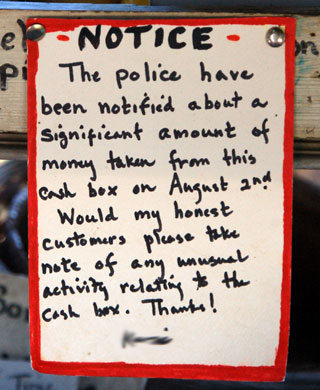 - NOTICE -
The police have
been notified about a
significant amount of
money taken from this
cash box on August 2nd
Would my honest
customers please take
note of any unusual
activity relating to the
cash box. Thanks!